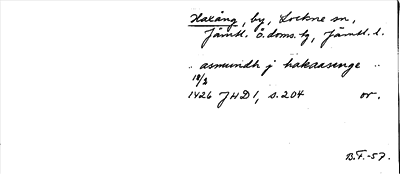 Haxäng, by, Lockne sn,
Jämtl. ö. doms. tg, Jämtl. l.
.. asmundh j hakaasenge ..
18/3
1426 JHD 1, s. 204 or.
B.F.-57.